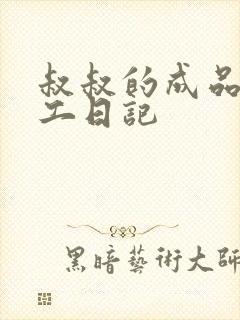 叔叔的成品
工日記
黑暗藝術大師